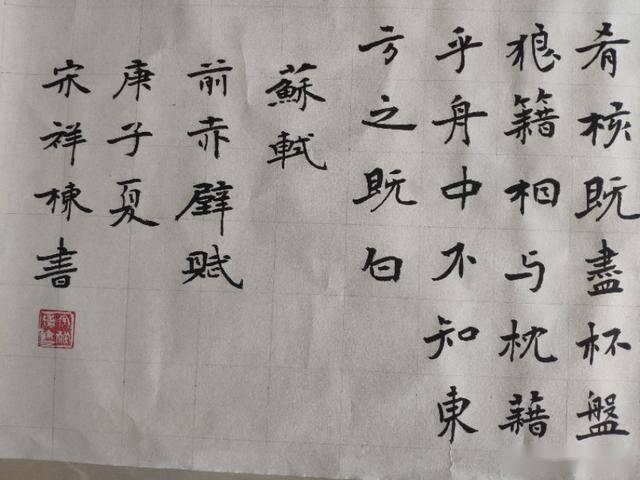 肴核既盡杯盤
狼籍相与枕藉
乎舟中不知東
方之既白
蘇軾
前赤壁賦
庚子夏
宋祥棟書